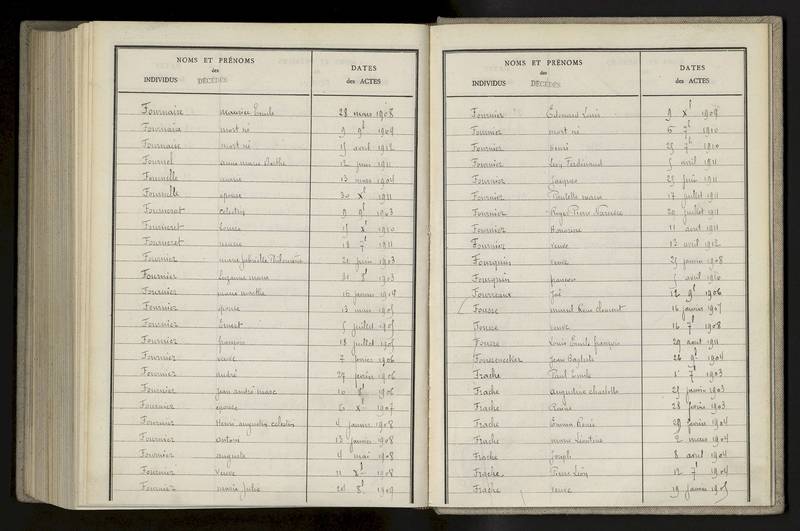 NOMS ET PRÉNOMS
des
INDIVIDUS DÉCÉDÉS
DATES
des ACTES
Fournaire Maurice Emile 28 mars 1908
Fournaire mort né 9 9b 1909
Fournaire mort né 15 avril 1912
Fournel anne marie Berthe 12 juin 1911
Fournelle marie 13 mars 1904
Fournelle épouse 30 Xb 1911
Fourneret Célestin 9 9b 1903
Fourneret Louise 15 Xb 1910
Fourneret marie 18 7b 1911
Fournier marie Philomène 21 juin 1903
Fournier Suzanne marie 31 8b 1903
Fournier 16 janvier 1904
Fournier épouse 13 mars 1905
Fournier Ernest 5 juillet 1905
Fournier françois 18 juillet 1905
Fournier veuve 7 février 1906
Fournier andré 27 février 1906
Fournier jean andré marc 10 8b 1906
Fournier épouse 6 Xb 1907
Fournier Henri augustin célestin 4 janvier 1908
Fournier antoine 13 janvier 1908
Fournier auguste 4 mai 1908
Fournier Veuve 11 Xb 1908
Fournier marie Julie 21 8b 1909
NOMS ET PRÉNOMS
des
INDIVIDUS DÉCÉDÉS
DATES
des ACTES
Fournier Edouard Louis 9 Xb 1909
Fournier mort né 6 7b 1910
Fournier henri 25 7b 1910
Fournier Ferdinand 5 avril 1911
Fournier Jacques 25 juin 1911
Fournier Paulette marie 17 juillet 1911
Fournier Roger Pierre 29 juillet 1911
Fournier Honorine 11 août 1911
Fournier veuve 12 avril 1912
Fourquin veuve 25 janvier 1908
Fourquin françois 5 avril 1910
Fourreaux 12 9b 1906
Fousse marcel René clément 16 janvier 1907
Fousse veuve 16 7b 1908
Fousse Louis Emile françois 29 août 1911
Jean Baptiste 26 9b 1904
Frache Paul Emile 1er 7b 1903
Frache augustine charlotte 25 janvier 1903
Frache 28 février 1903
Frache Emma Renée 29 février 1904
Frache marie Léontine 2 mars 1904
Frache Joseph 8 avril 1904
Frache Pierre Léon 12 7b 1904
Frache veuve 19 janvier 1905